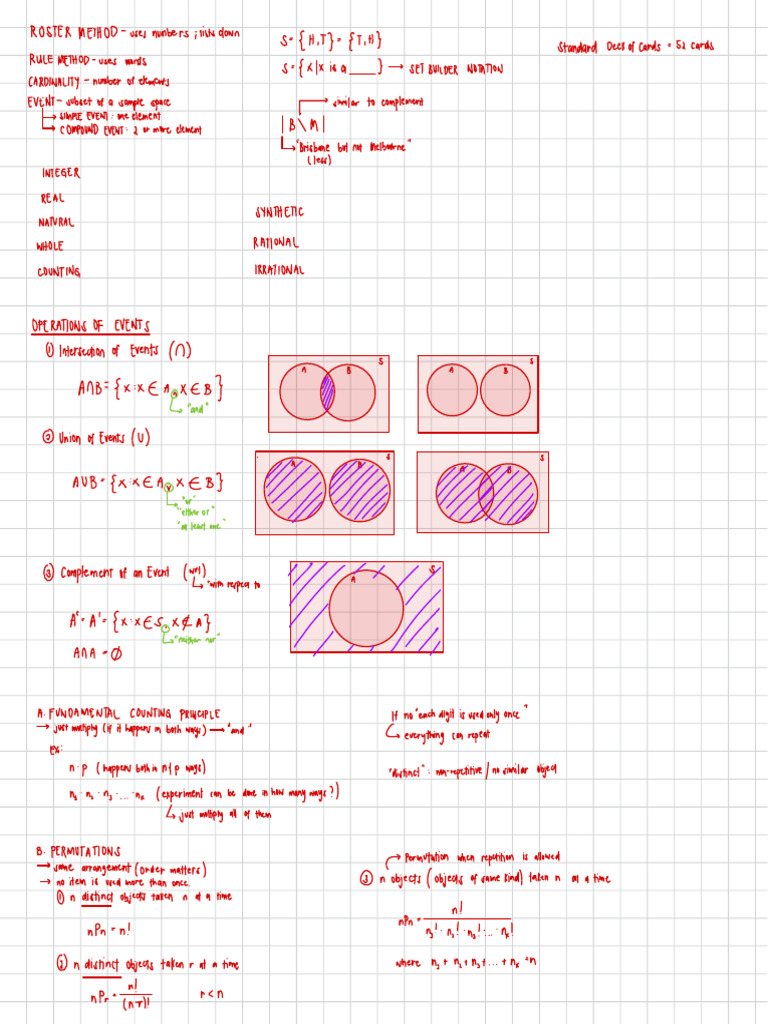 ROSTER METHOD - uses numbers ; lists down
RULE METHOD - uses words
CARDINALITY - number of elements
EVENT - subset of a sample space
→ SIMPLE EVENT : one element
→ COMPOUND EVENT : 2 or more element
S = {H,T} = {T,H}
S = {X|X is a ____} → SET BUILDER NOTATION
→ similar to complement
|B\M|
→ "Brisbane but not Melbourne"
(less)
Standard Decs of Cards = 52 cards
INTEGER
REAL
NATURAL
WHOLE
COUNTING
SYNTHETIC
RATIONAL
IRRATIONAL
OPERATIONS OF EVENTS
① Intersection of Events (∩)
A∩B = {X : X ∈ A , X ∈ B}
→ "and"
A B S
A B S
② Union of Events (U)
AUB = {X : X ∈ A , X ∈ B}
→ "or"
"either or"
"at least one"
A B S
A B S
③ Complement of an Event (wrt)
→ "with respect to
Aᶜ = A' = {X : X ∈ S , X ∉ A}
→ "neither nor"
A∩A = ∅
A S
A. FUNDAMENTAL COUNTING PRINCIPLE
→ just multiply (if it happens in both ways) → "and"
ex:
n · p (happens both in n & p ways)
n₁ · n₂ · n₃ · ... · nₖ (experiment can be done in how many ways?)
→ just multiply all of them
If no "each digit is used only once"
→ everything can repeat
"distinct" : non-repetitive / no similar object
B. PERMUTATIONS
→ same arrangement (order matters)
→ no item is used more than once.
① n distinct objects taken n at a time
nPn = n!
② n distinct objects taken r at a time
nPr = n! / (n-r)! r < n
→ Permutation when repetition is allowed
③ n objects (objects of same kind) taken n at a time
nPn = n!
where